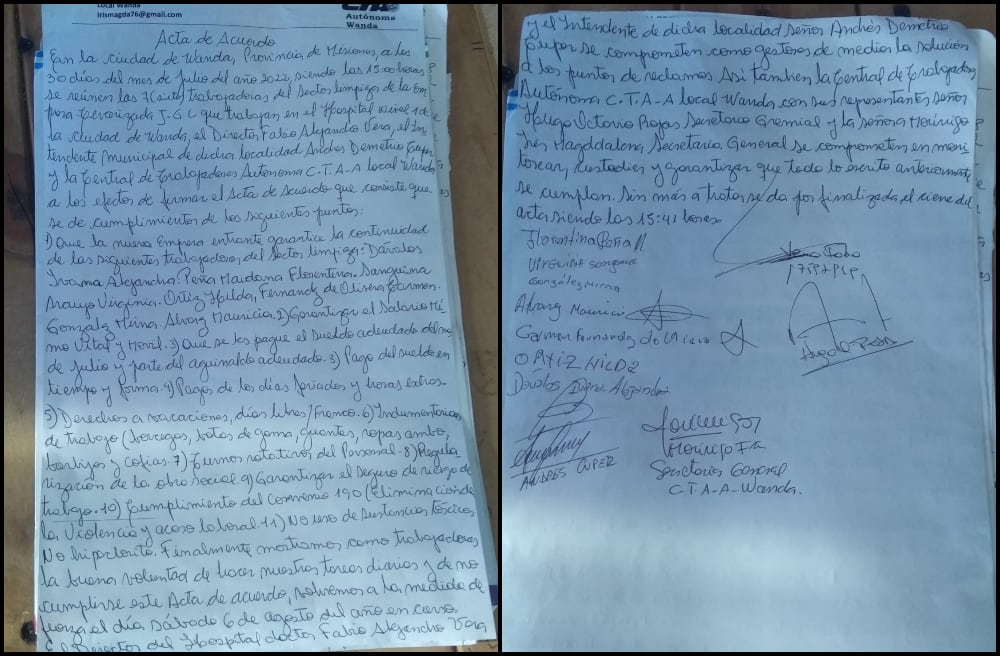 Local Wanda
irismagda76@gmail.com
CTA
Autónoma
Wanda
Acta de Acuerdo
En la ciudad de Wanda, Provincia de Misiones, a los
30 días del mes de Julio del año 2022, siendo las 15:00 horas
se reúnen las 7(siete) trabajadoras del Sector limpieza de la Em
presa Tercerizada J.G.C que trabajan en el Hospital nivel 1 de
la ciudad de Wanda, el Director, Fabio Alejandro Vera, el In
tendente municipal de dicha localidad Andres Demetrio Cuper
y la Central de Trabajadores Autonoma C.T.A-A local Wanda
a los efectos de firmar el Acta de Acuerdo que consiste que
se de cumplimientos de los siguientes puntos:
1) Que la nueva Empresa entrante garantice la continuidad
de las siguientes trabajadoras del Sector limpieza: Dávalos
Ivanna Alejandra. Peña Maidana Florentina. Sanguina
Araujo Virginia. Ortiz Hilda, Fernandez de Olivera Carmen.
Gonzalez Mirna. Alvarez Mauricio. 2) Garantizar el Salario Mí
nimo Vital y Movil. 3) Que se les pague el sueldo adeudado del mes
de Julio y parte del aguinaldo adeudado. 3) Pago del sueldo en
tiempo y forma. 4) Pagos de los días feriados y horas extras.
5) Derechos a vacaciones, días libres/Franco. 6) Indumentarias
de trabajo (borcegos, botas de goma, guantes, ropas ambo,
barbijos y cofias. 7) Turnos rotativos del Personal. 8) Regula
rización de la obra Social. 9) Garantizar el Seguro de riesgo de
trabajo. 10) Cumplimiento del Convenio 190 (Eliminación de
la Violencia y acoso laboral. 11) No uso de Sustancias tóxicos
No hipoclorito. Finalmente mostramos como trabajadoras
la buena voluntad de hacer nuestras tareas diarias y de no
cumplirse este Acta de acuerdo, volvemos a la medida de
fuerza el día sábado 6 de agosto del año en curso.
El Director del Hospital doctor Fabio Alejandro Vera
y el Intendente de dicha localidad señor Andrés Demetrio
Cuper se comprometen como gestores de mediar la solución
a los puntos de reclamos. Asi tambien la Central de Trabajadores
Autónoma C.T.A-A local Wanda, con sus representantes señor
Hugo Octavio Rojas Secretario Gremial y la señora Horiñigo
Iris Magdalena, Secretaria General se comprometen en moni
torear, custodiar y garantizar que todo lo escrito anteriormente
se cumplan. Sin más a tratar se da por finalizada el cierre del
acta siendo las 15:41 horas.
Florentina Peña M
VIRGINIA Sanguina
González Mirna
Alvarez Mauricio
Carmen Fernandez de Olivera
ORTIZ HILDA
Dávalos Ivana Alejandra
ANDRES CUPER
Horiñigo Iris
Secretaria General
C.T.A-A-Wanda.